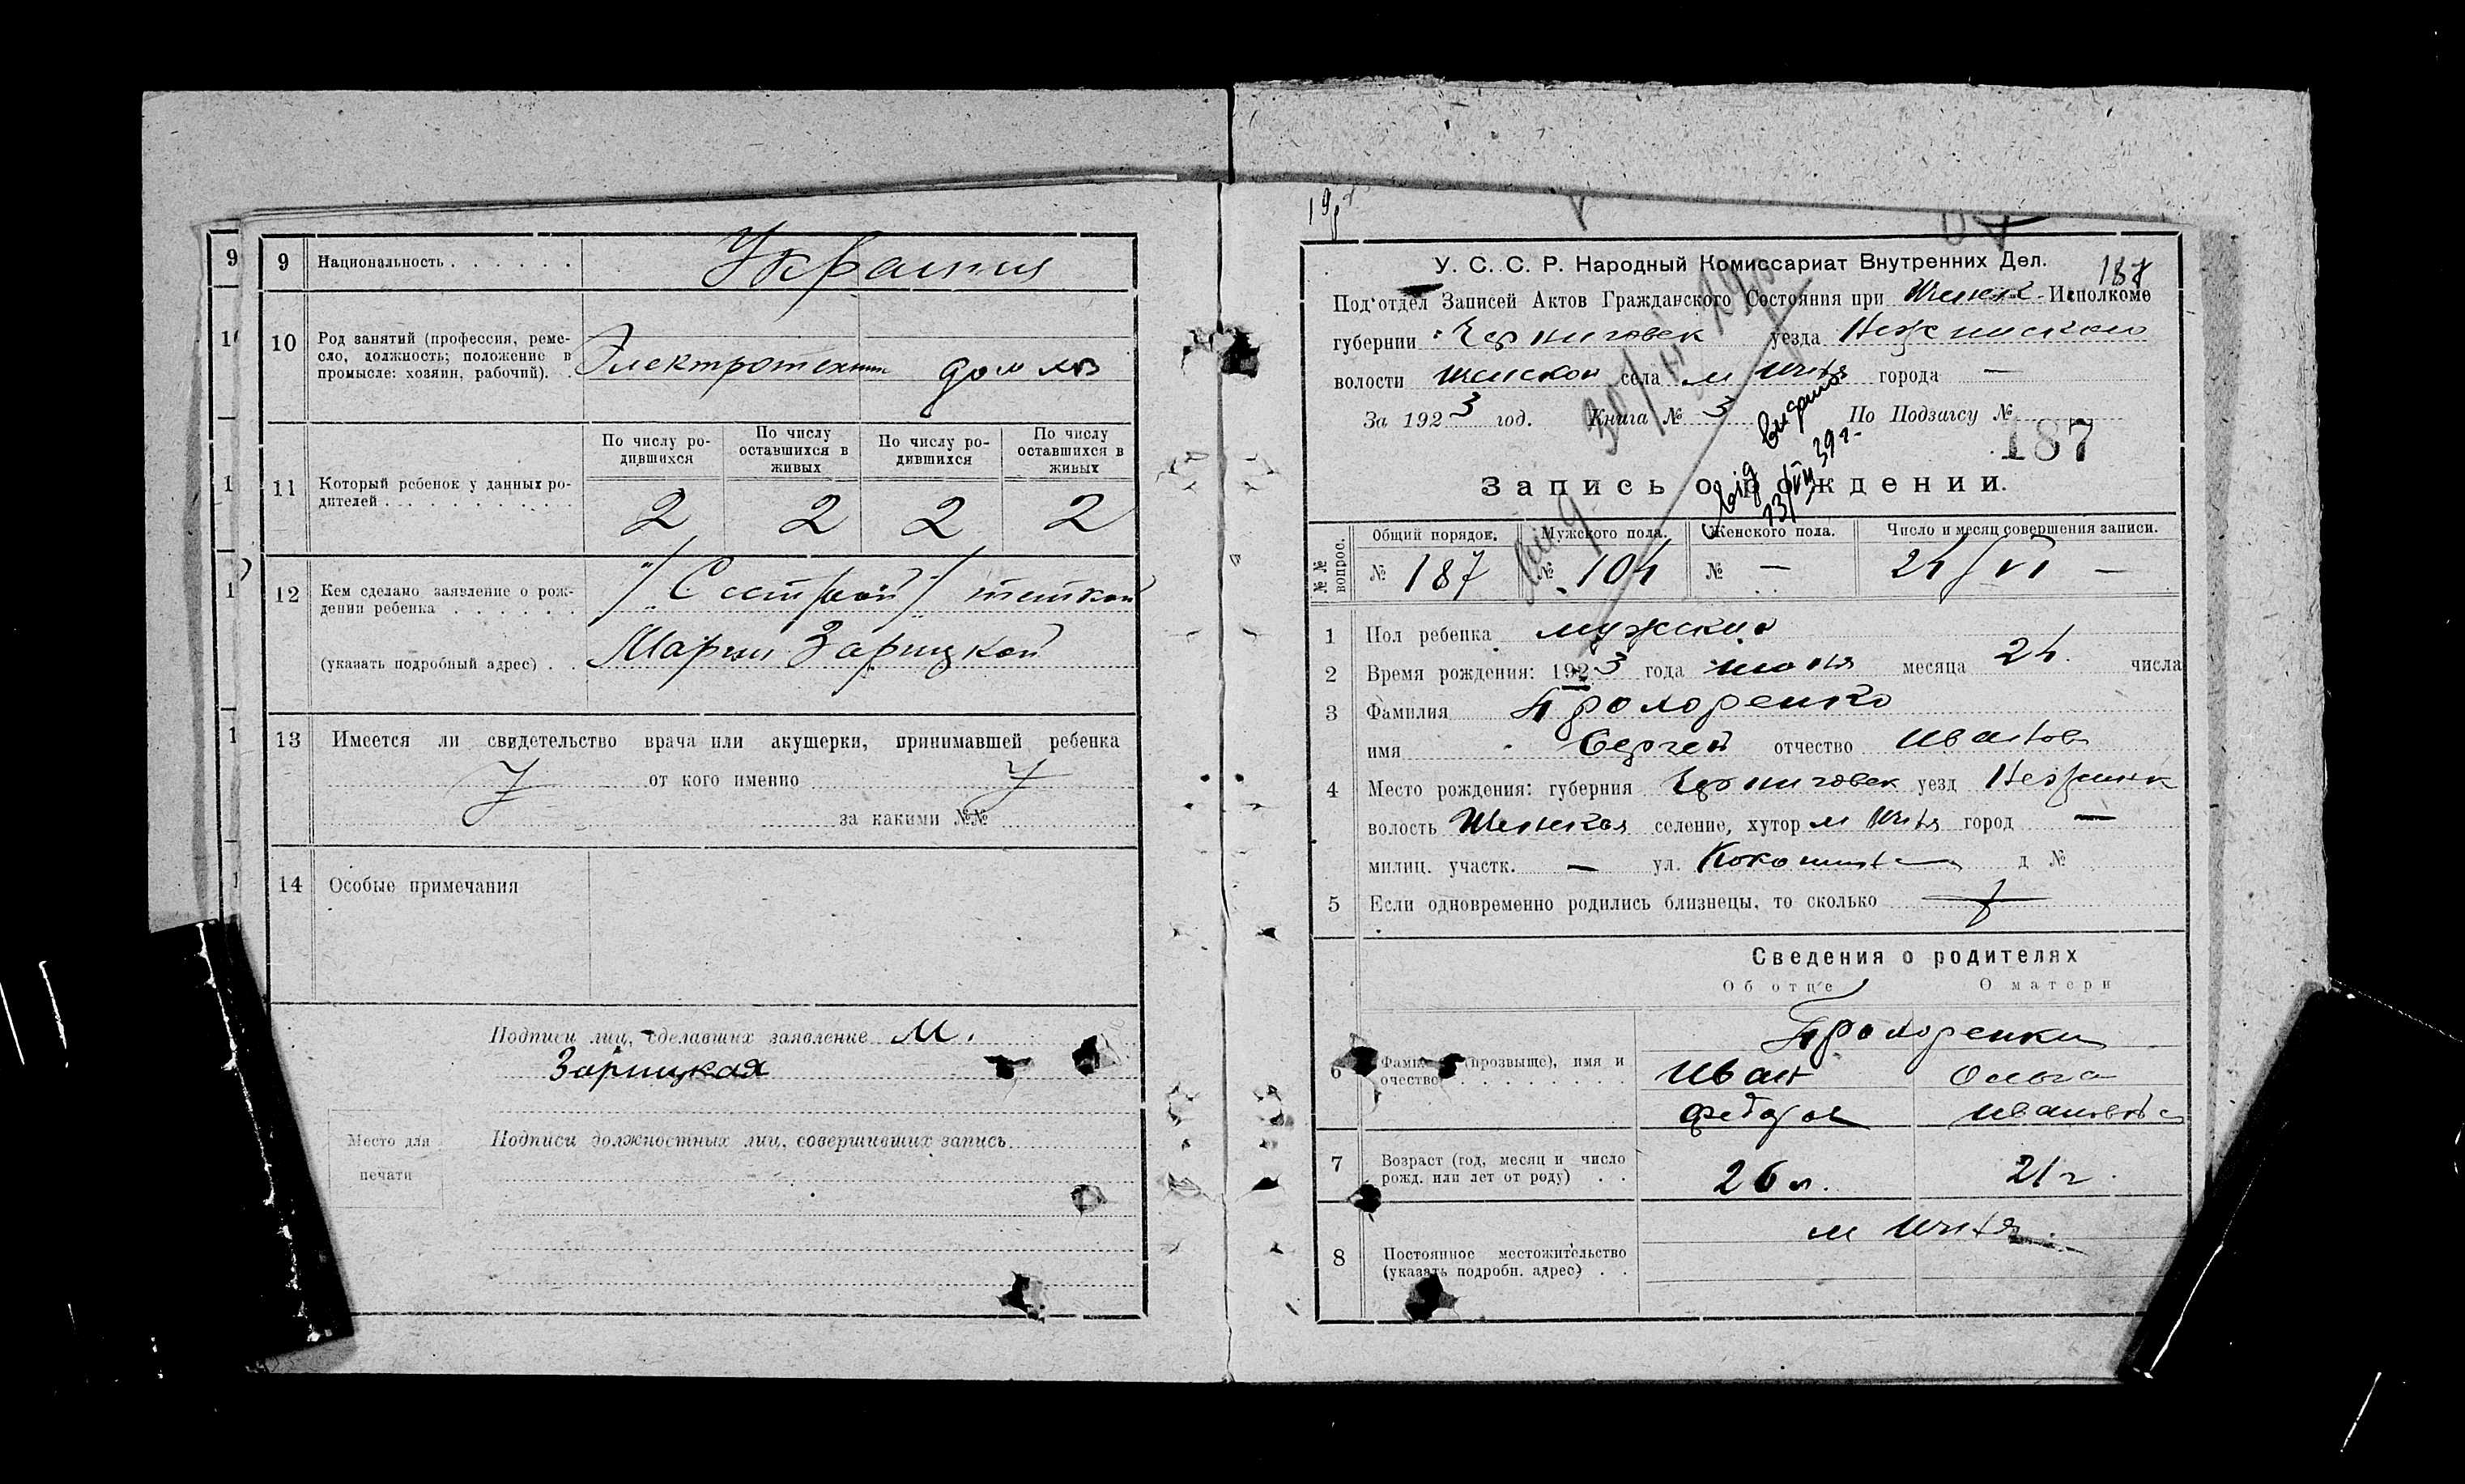 9
9 Национальность . . . . . .
10 Род занятий (профессия, реме-
сло, должность; положение в
промысле: хозяин, рабочий). .
Электротехник
11 Который ребенок у данных ро-
дителей . . . . . . . . . .
По числу ро-
дившихся
По числу
оставшихся в
живых
По числу ро-
дившихся
По числу
оставшихся в
живых
2 2 2 2
12 Кем сделано заявление о рож-
дении ребенка . . . . . .
"/Сестрой"/ теткой
(указать подробный адрес) . .
Марии Зарицкой
13 Имеется ли свидетельство врача или акушерки, принимавшей ребенка
от кого именно
за какими №№
14 Особые примечания
Подписи лиц, сделавших заявление М.
Зарицкая
Место для
печати
Подписи должностных лиц, совершивших запись
У. С. С. Р. Народный Комиссариат Внутренних Дел.
187
Под'отдел Записей Актов Гражданского Состояния при Исполкоме
губернии Черниговск уезда Нежинского
волости села м города —
За 1923 год. Книга № 3 По Подзагсу №
187
Запись о рождении.
№№ вопрос.
Общий порядок. Мужского пола. Женского пола. Число и месяц совершения записи.
№ 187 № 104 № — 24/VI —
1 Пол ребенка мужский
2 Время рождения: 1923 года июня месяца 24. числа
3 Фамилия Прохоренко
имя Сергей отчество Иванов
4 Место рождения: губерния Черниговск уезд Нежинск
волость селение, хутор м город —
милиц. участк. — ул. д №
5 Если одновременно родились близнецы, то сколько
Сведения о родителях
Об отце О матери
6 (прозвыще), имя и
очество . . . . . . . .
Прохоренки
Иван Ольга
Федоров Ивановна
7 Возраст (год, месяц и число
рожд. или лет от роду) . .
26 л. 21 г.
8 Постоянное местожительство
(указать подробн. адрес) . .